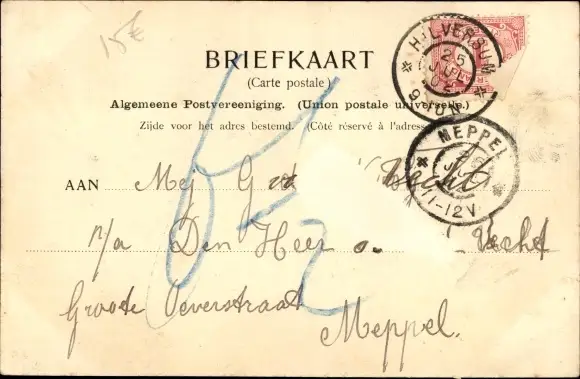 15€
BRIEFKAART
(Carte postale)
Algemeene Postvereeniging. (Union postale universelle.)
Zijde voor het adres bestemd. (Côté réservé à l'adresse
HILVERSUM
25
9-10N
MEPPEL
11-12V
AAN Mej G Vecht
p/a Den Heer Vecht
Groote Oeverstraat
Meppel.